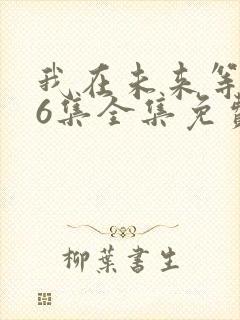 我在未来等
6集全集免费
柳叶书生